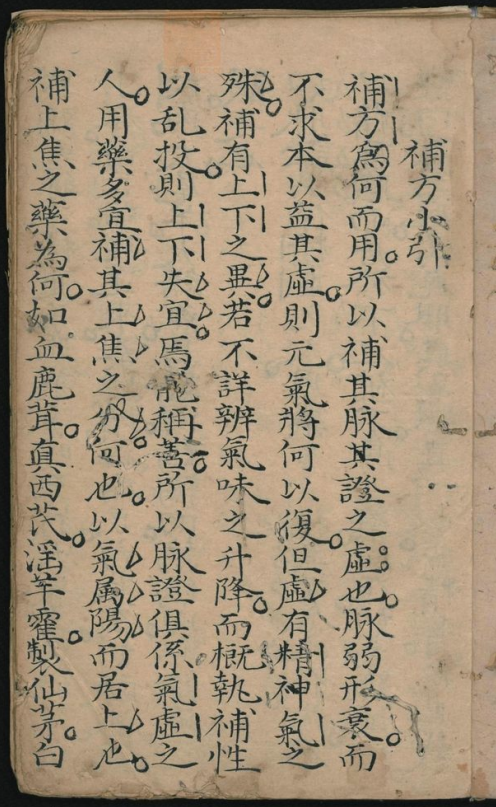 補方小引
補方為何而用所以補其脉其證之虛也脉弱形衰而
不求本以益其虛則元氣將何以復但虛有精神氣之
殊補有上下之異若不詳辨氣味之升降而概執補性
以乱投則上下失宜焉能稱善所以脉證俱係氣虛之
人用藥多宜補其上焦之分何也以氣属陽而居上也
補上焦之藥為何如血鹿茸真西芪淫羊霍製仙茅白